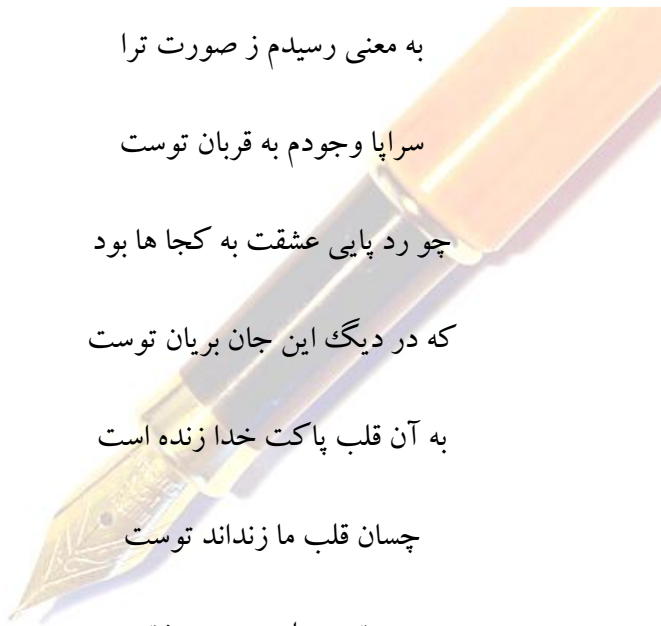 به معنی رسیدم ز صورت ترا
سراپا وجودم به قربان توست
چو رد پایی عشقت به کجا ها بود
که در دیگ این جان بریان توست
به آن قلب پاکت خدا زنده است
چسان قلب ما زنداند توست